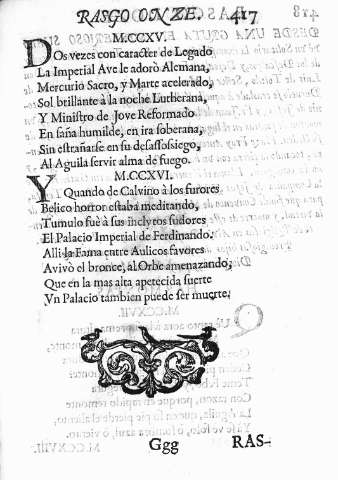 RASGO ONZE. 417
M.CCXV.
DOs vezes con caracter de Legado
La Imperial Ave le adorò Alemana,
Mercurio Sacro, y Marte acelerado,
Sol brillante à la noche Lutherana,
Y Ministro de Jove Reformado
En saña humilde, en ira soberana,
Sin estrañarse en su desassossiego,
Al Aguila servir alma de fuego.
M.CCXVI.
Y Quando de Calvino à los furores
Belico horror estaba meditando,
Tumulo fuè à sus inclytos sudores
El Palacio Imperial de Ferdinando.
Alli la Fama entre Aulicos favores
Avivò el bronce, al Orbe amenazando,
Que en la mas alta apetecida suerte
Vn Palacio tambien puede ser muerte.
Ggg RAS-